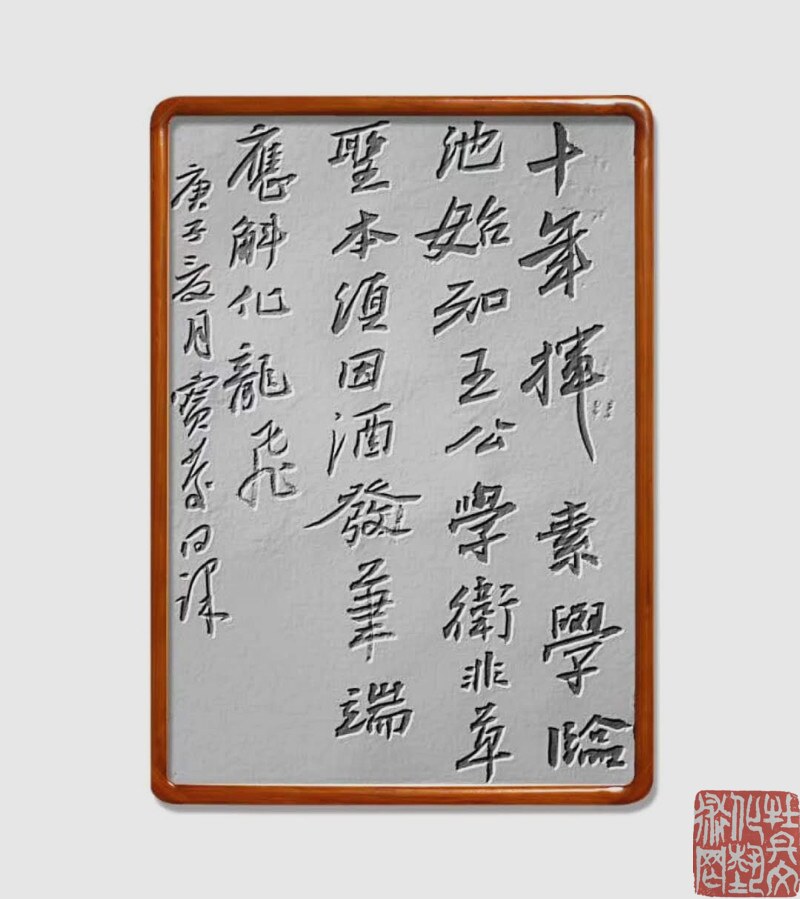 十年揮素學臨
池始知王公學衛非草
聖本須因酒發筆端
應解化龍飛
庚子夏月寶蒙日課